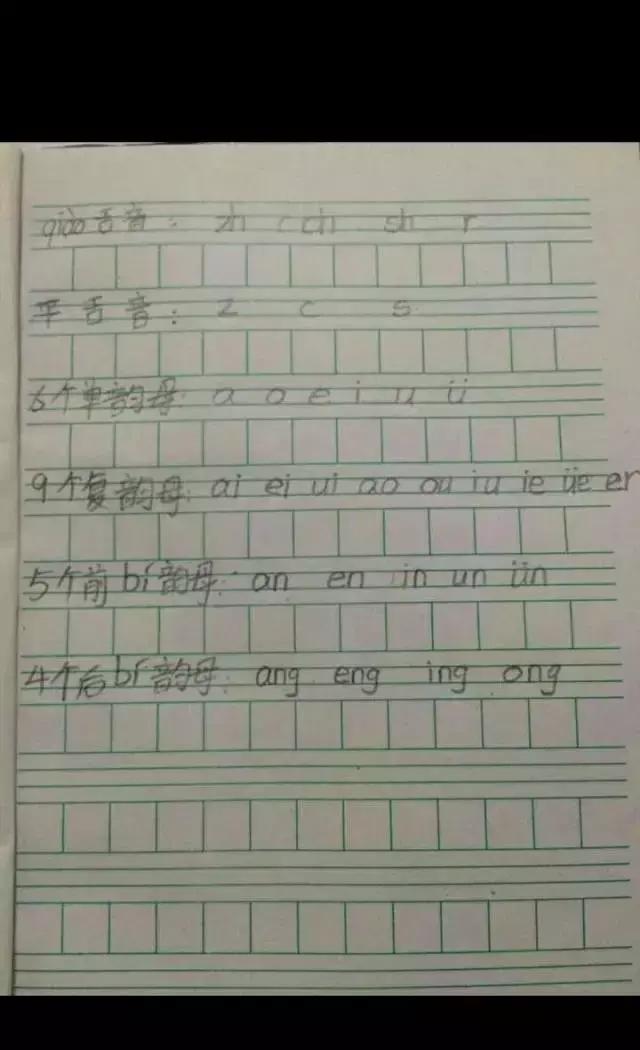 qiào舌音: zh ch sh r
平舌音: z c s
6个单韵母: a o e i u ü
9个复韵母: ai ei ui ao ou iu ie üe er
5个前bí韵母: an en in un ün
4个后bí韵母: ang eng ing ong